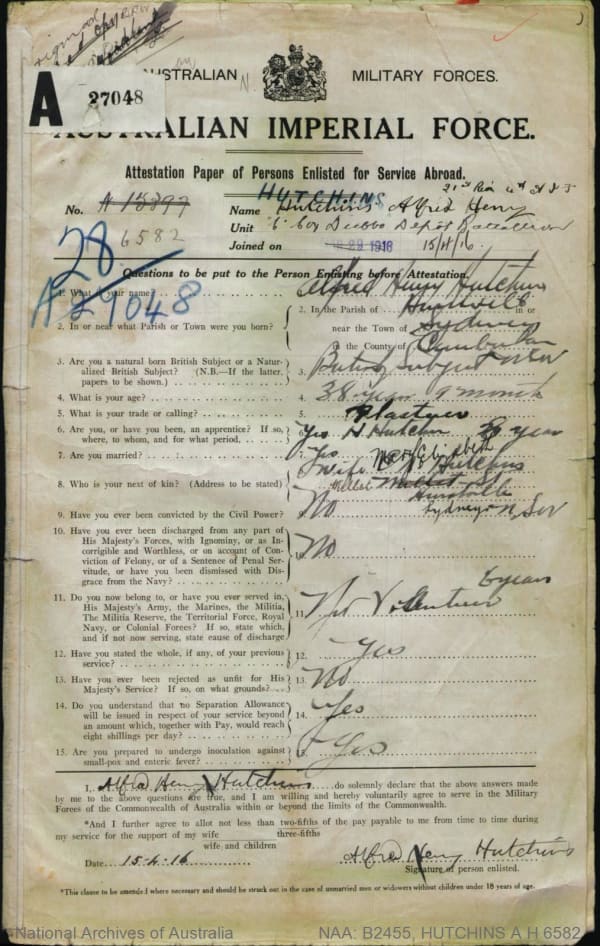 AUSTRALIAN MILITARY FORCES.
A 27048
AUSTRALIAN IMPERIAL FORCE.
Attestation Paper of Persons Enlisted for Service Abroad.
HUTCHINS
No. A 13397 Name Hutchins Alfred Henry
6582 Unit 6 Coy Dubbo Depot Battalion
Joined on 1916 15/4/16.
28
A 27048
Questions to be put to the Person Enlisting before Attestation.
1. What is your name? Alfred Henry Hutchins
2. In or near what Parish or Town were you born? 2. In the Parish of in or
near the Town of Sydney
in the County of Cumberland
3. Are you a natural born British Subject or a Natur-
alized British Subject? (N.B.—If the latter,
papers to be shown.) 3. British Subject
4. What is your age? 4. 38 years 9 months
5. What is your trade or calling? 5. Plasterer
6. Are you, or have you been, an apprentice? If so,
where, to whom, and for what period. 6. Yes H Hutchins years
7. Are you married? 7. Yes
8. Who is your next of kin? (Address to be stated) 8. Wife Mary Elizabeth Hutchins
Hurstville
Sydney N.S.W
9. Have you ever been convicted by the Civil Power? 9. No
10. Have you ever been discharged from any part of
His Majesty's Forces, with Ignominy, or as In-
corrigible and Worthless, or on account of Con-
viction of Felony, or of a Sentence of Penal Ser-
vitude, or have you been dismissed with Dis-
grace from the Navy? 10. No
11. Do you now belong to, or have you ever served in,
His Majesty's Army, the Marines, the Militia,
The Militia Reserve, the Territorial Force, Royal
Navy, or Colonial Forces? If so, state which,
and if not now serving, state cause of discharge 11. Volunteers 6 years
12. Have you stated the whole, if any, of your previous
service? 12. Yes
13. Have you ever been rejected as unfit for His
Majesty's Service? If so, on what grounds? 13. No
14. Do you understand that no Separation Allowance
will be issued in respect of your service beyond
an amount which, together with Pay, would reach
eight shillings per day? 14. Yes
15. Are you prepared to undergo inoculation against
small-pox and enteric fever? 15. Yes
I, Alfred Henry Hutchins do solemnly declare that the above answers made
by me to the above questions are true, and I am willing and hereby voluntarily agree to serve in the Military
Forces of the Commonwealth of Australia within or beyond the limits of the Commonwealth.
*And I further agree to allot not less than two-fifths of the pay payable to me from time to time during
three-fifths
my service for the support of my wife
wife and children
Date 15-4-16 Alfred Henry Hutchins
Signature of person enlisted.
*This clause to be amended where necessary and should be struck out in the case of unmarried men or widowers without children under 18 years of age.
National Archives of Australia NAA: B2455, HUTCHINS A H 6582